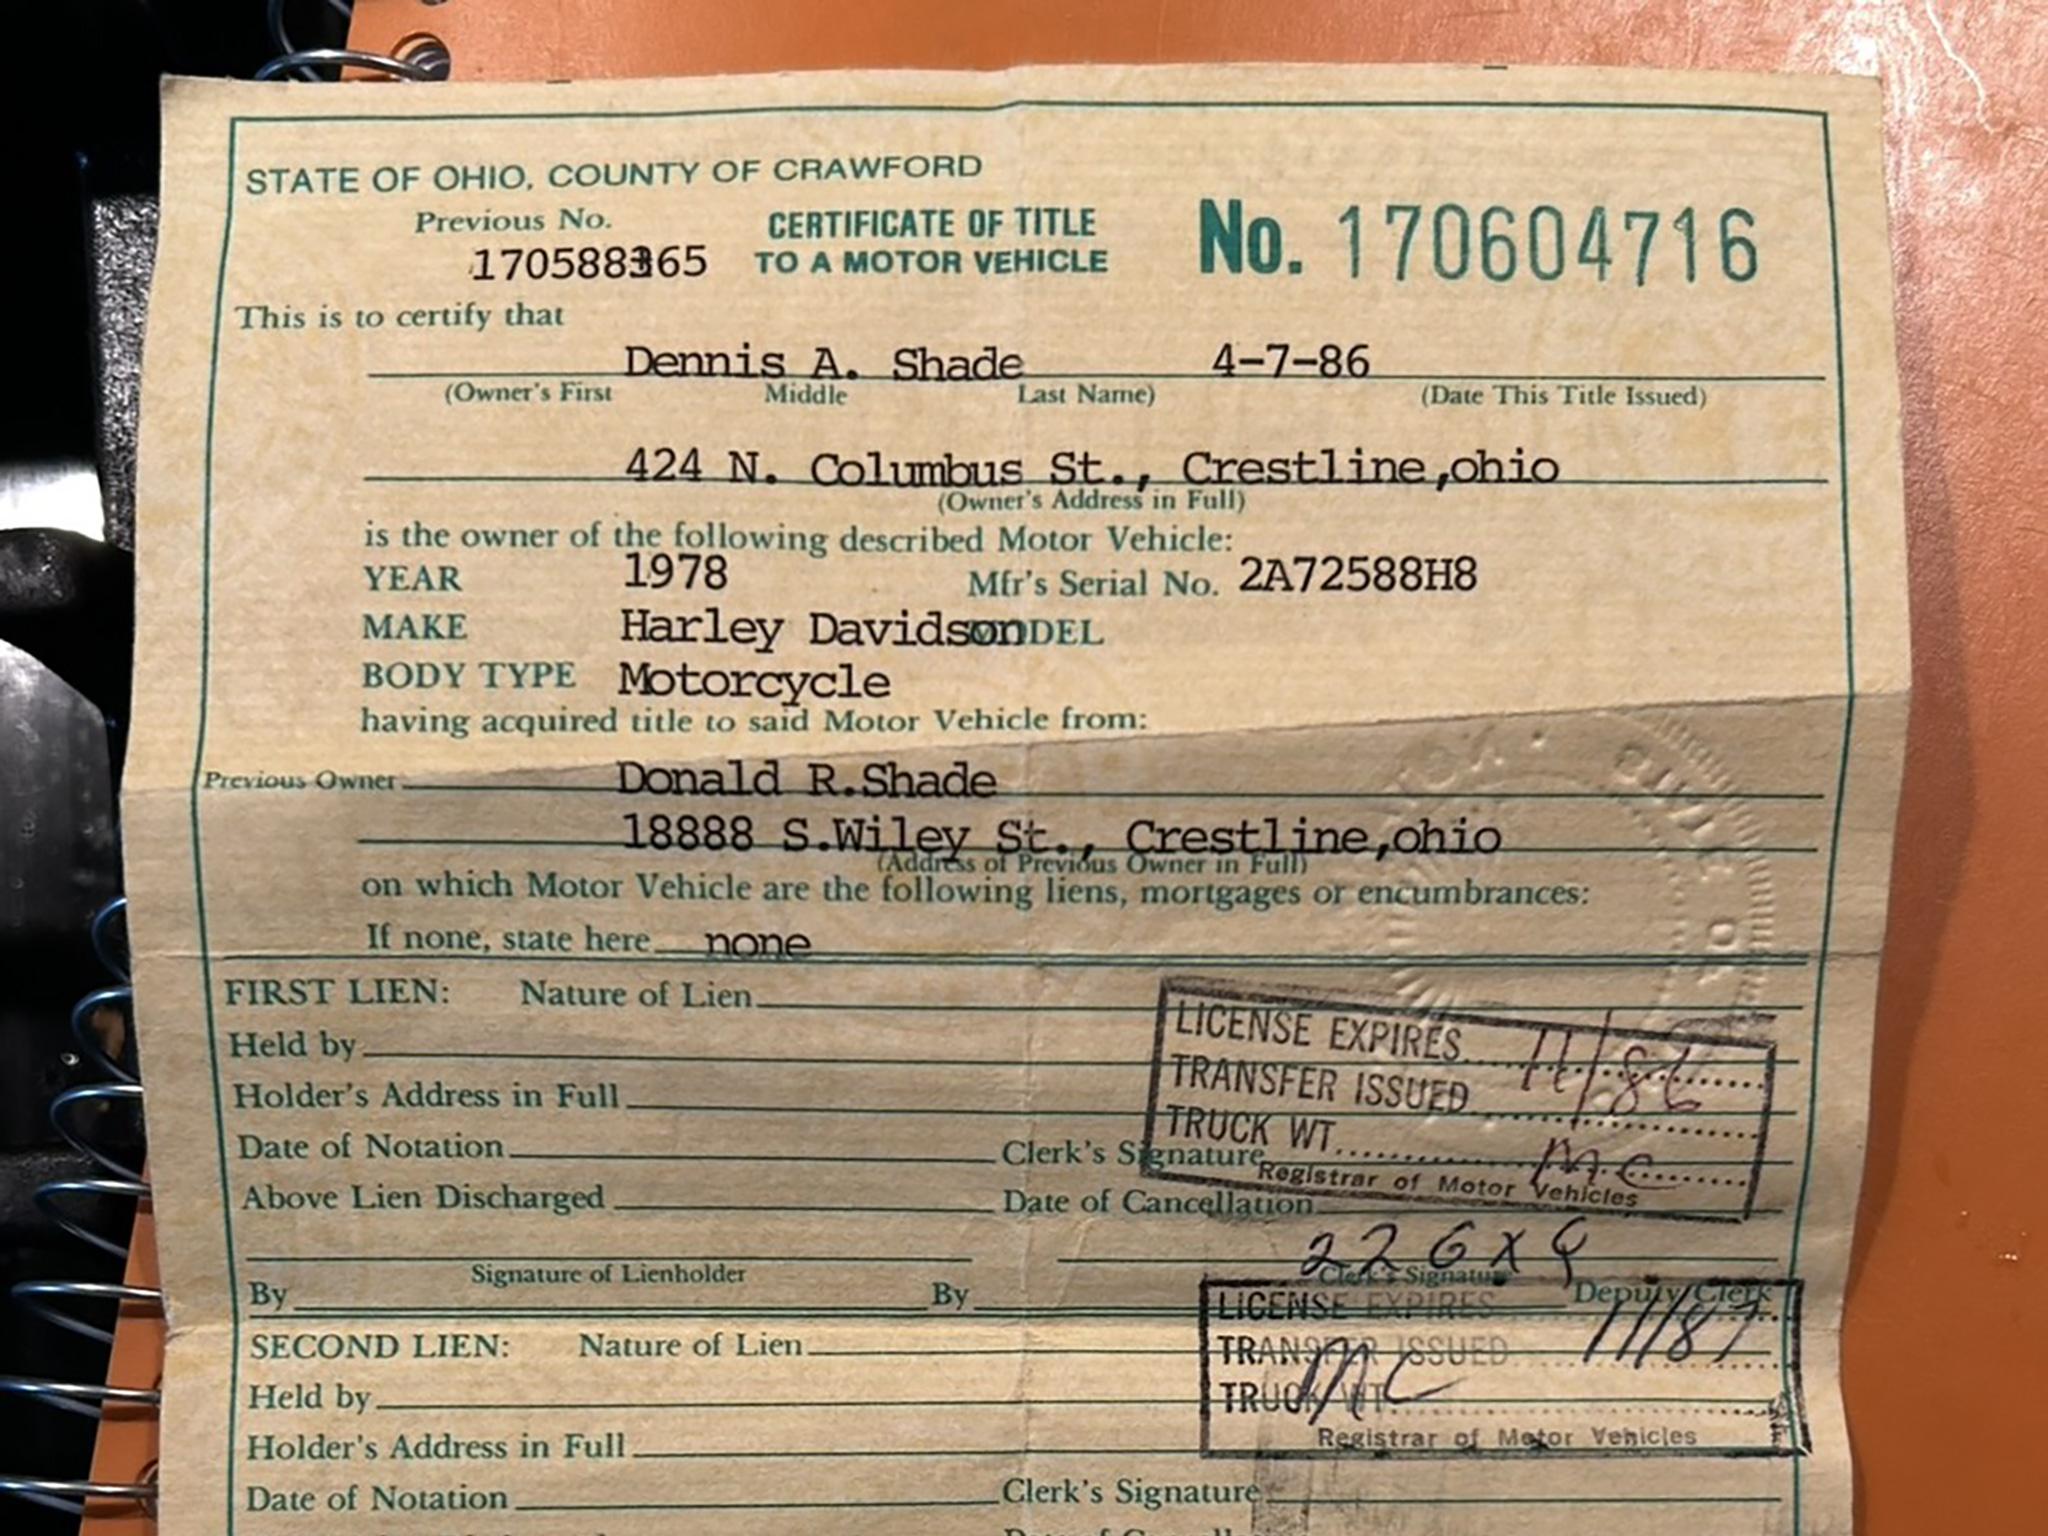 STATE OF OHIO, COUNTY OF CRAWFORD
Previous No.
CERTIFICATE OF TITLE
TO A MOTOR VEHICLE
No. 170604716
This is to certify that
Dennis A. Shade 4-7-86
(Owner's First Middle Last Name) (Date This Title Issued)
424 N. Columbus St., Crestline,ohio
(Owner's Address in Full)
is the owner of the following described Motor Vehicle:
YEAR 1978 Mfr's Serial No. 2A72588H8
MAKE Harley Davidson MODEL
BODY TYPE Motorcycle
having acquired title to said Motor Vehicle from:
Previous Owner Donald R.Shade
18888 S.Wiley St., Crestline,ohio
(Address of Previous Owner in Full)
on which Motor Vehicle are the following liens, mortgages or encumbrances:
If none, state here none
FIRST LIEN: Nature of Lien
Held by
Holder's Address in Full
Date of Notation Clerk's Signature
Above Lien Discharged Date of Cancellation
LICENSE EXPIRES 11/86
TRANSFER ISSUED
TRUCK WT. MC
Registrar of Motor Vehicles
Signature of Lienholder Clerk's Signature
By By Deputy Clerk
LICENSE EXPIRES 11/87
TRANSFER ISSUED
TRUCK WT MC
Registrar of Motor Vehicles
SECOND LIEN: Nature of Lien
Held by
Holder's Address in Full
Date of Notation Clerk's Signature